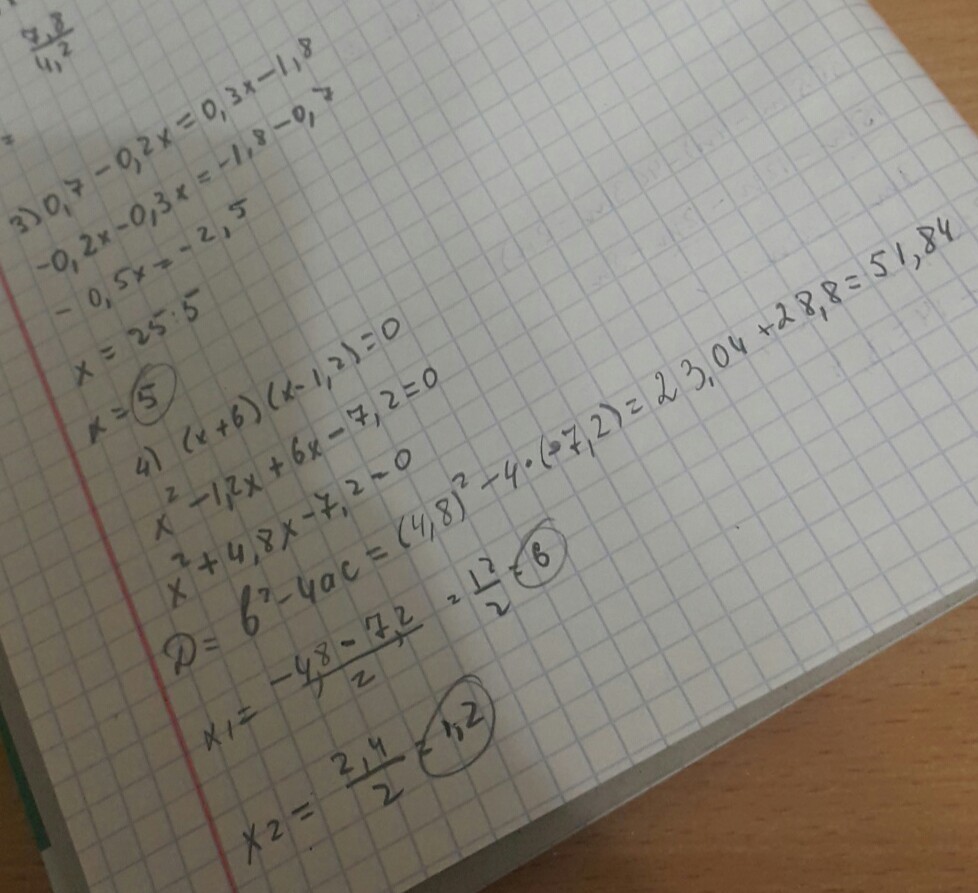 7,8
4,2
=
3) 0,7 - 0,2x = 0,3x - 1,8
-0,2x - 0,3x = -1,8 - 0,7
- 0,5x = -2,5
x = 25:5
x = 5
4) (x+6)(x-1,2)=0
x² - 1,2x + 6x - 7,2 = 0
x² + 4,8x - 7,2 = 0
D = b² - 4ac = (4,8)² - 4·(-7,2) = 23,04 + 28,8 = 51,84
x1 = -4,8 - 7,2 / 2 = 12 / 2 = 6
x2 = 2,4 / 2 = 1,2